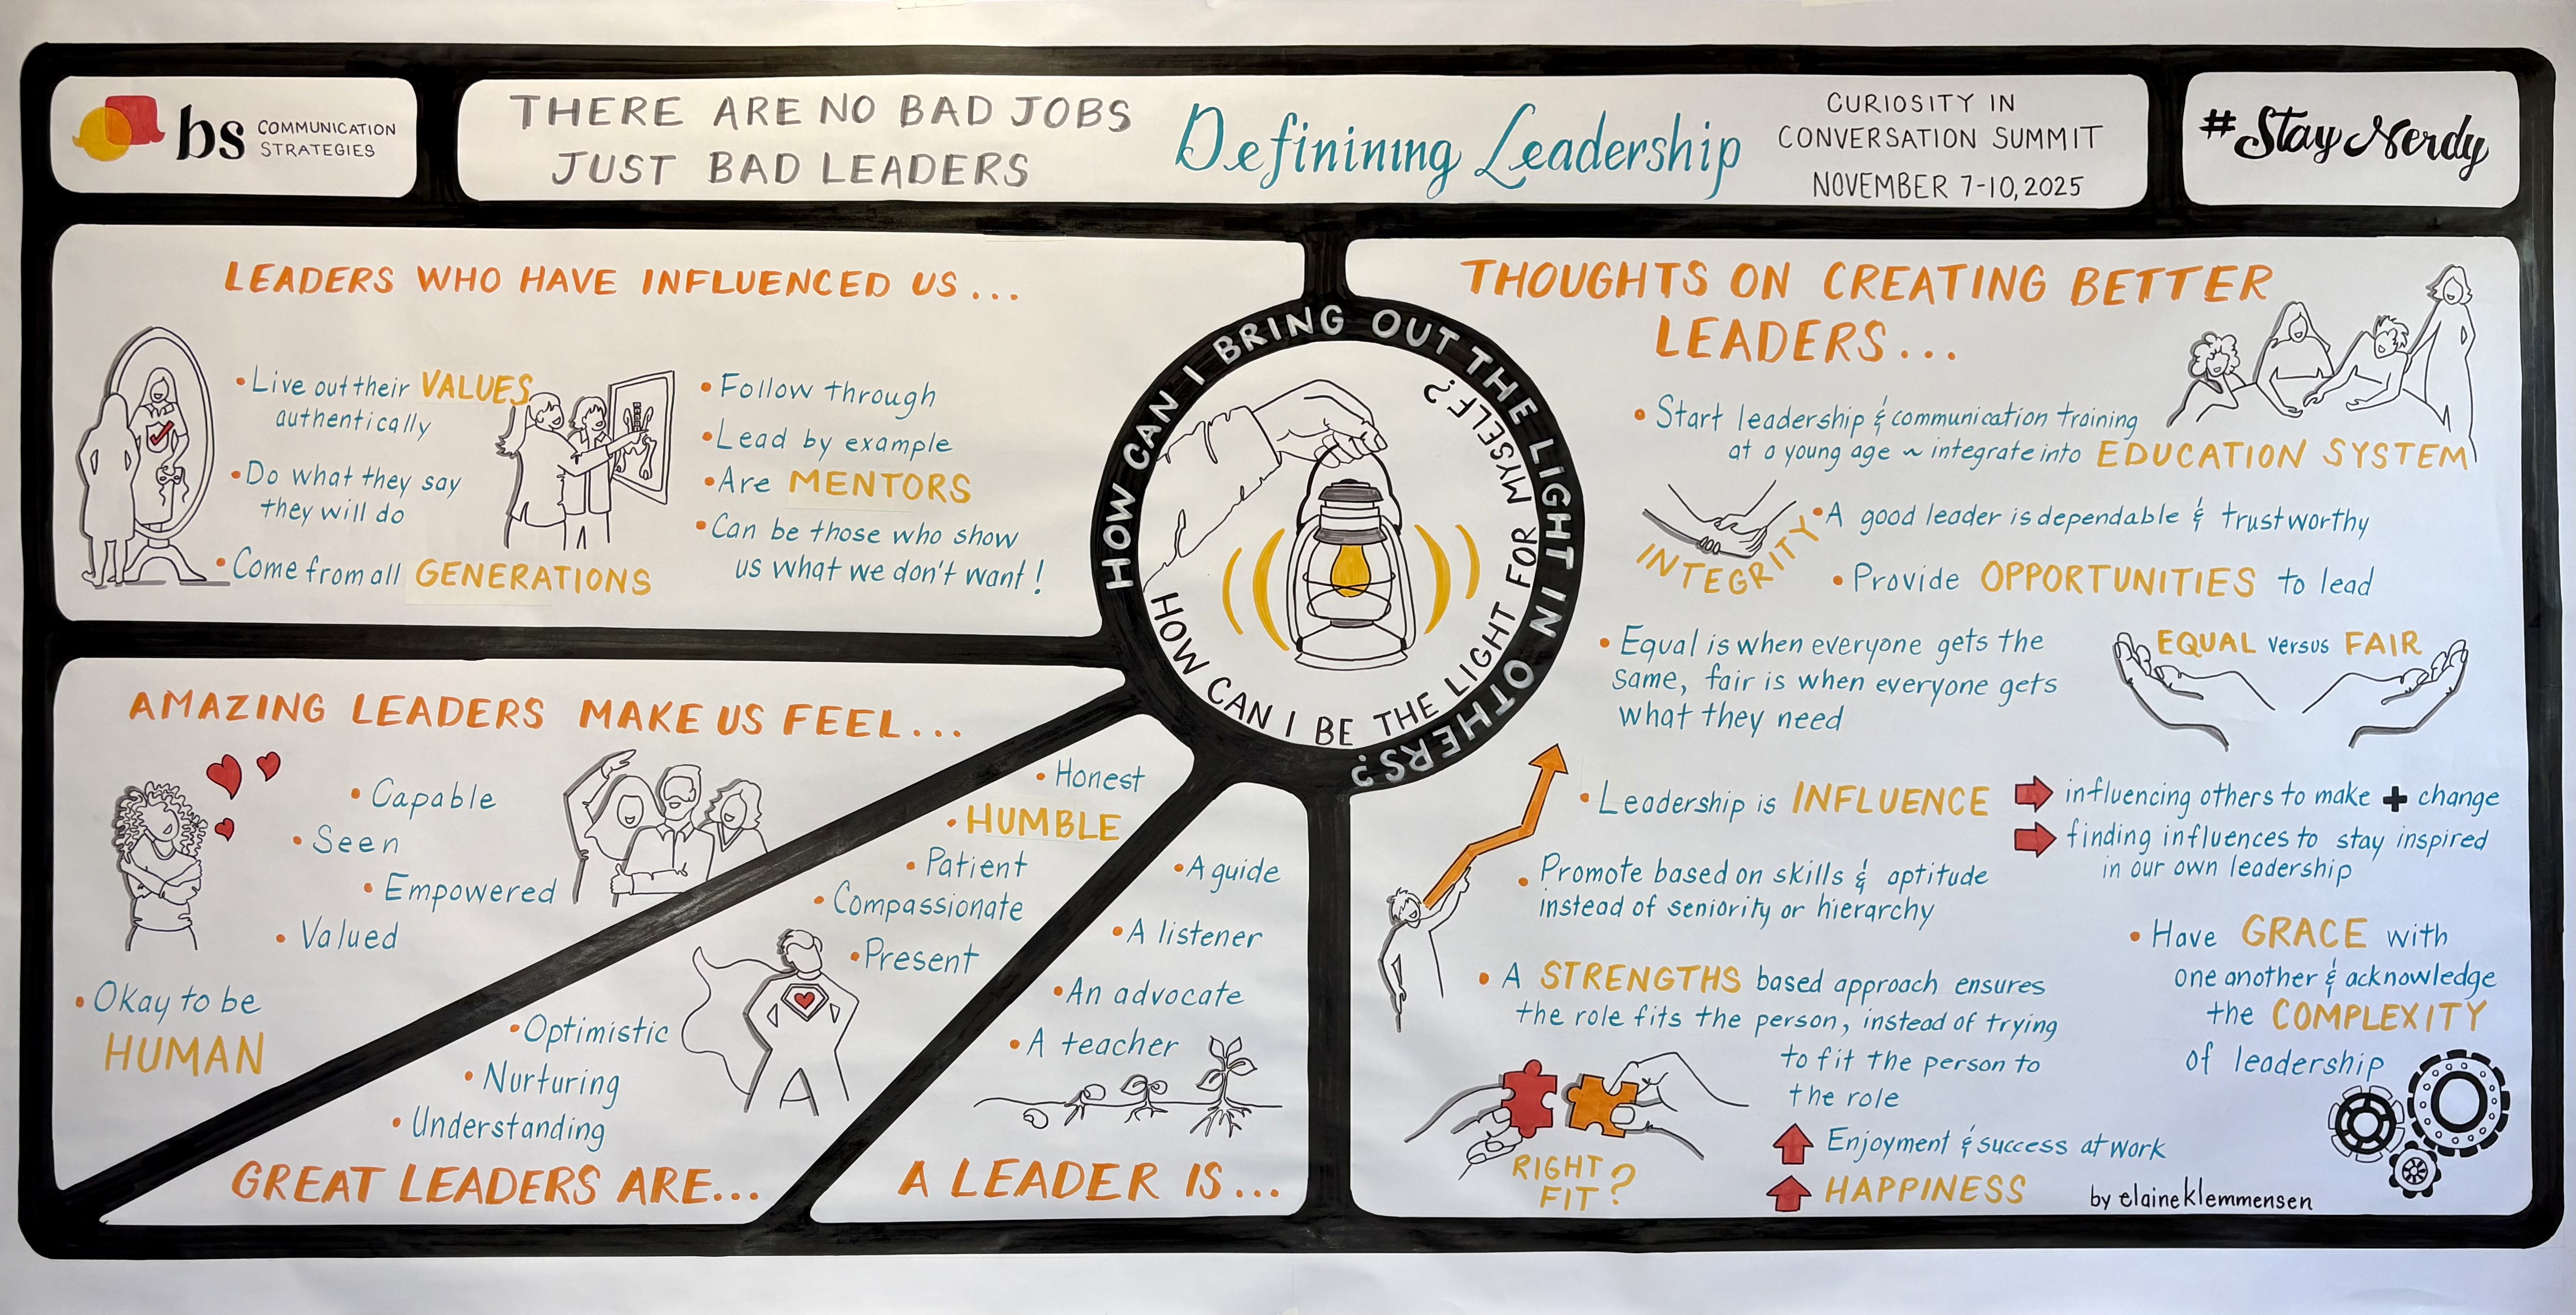 bs COMMUNICATION
STRATEGIES
THERE ARE NO BAD JOBS
JUST BAD LEADERS
Definining Leadership
CURIOSITY IN
CONVERSATION SUMMIT
NOVEMBER 7-10, 2025
#StayNerdy
LEADERS WHO HAVE INFLUENCED US...
• Live out their VALUES
authentically
• Do what they say
they will do
• Come from all GENERATIONS
• Follow through
• Lead by example
• Are MENTORS
• Can be those who show
us what we don't want!
HOW CAN I BRING OUT THE LIGHT IN OTHERS?
HOW CAN I BE THE LIGHT FOR MYSELF?
THOUGHTS ON CREATING BETTER
LEADERS...
• Start leadership & communication training
at a young age ~ integrate into EDUCATION SYSTEM
INTEGRITY
• A good leader is dependable & trustworthy
• Provide OPPORTUNITIES to lead
• Equal is when everyone gets the
same, fair is when everyone gets
what they need
EQUAL versus FAIR
• Leadership is INFLUENCE
influencing others to make + change
finding influences to stay inspired
in our own leadership
• Promote based on skills & aptitude
instead of seniority or hierarchy
• A STRENGTHS based approach ensures
the role fits the person, instead of trying
to fit the person to
the role
RIGHT
FIT?
Enjoyment & success at work
HAPPINESS
• Have GRACE with
one another & acknowledge
the COMPLEXITY
of leadership
by elaineklemmensen
AMAZING LEADERS MAKE US FEEL...
• Capable
• Seen
• Empowered
• Valued
• Okay to be
HUMAN
• Honest
• HUMBLE
• Patient
• Compassionate
• Present
• Optimistic
• Nurturing
• Understanding
GREAT LEADERS ARE...
• A guide
• A listener
• An advocate
• A teacher
A LEADER IS...